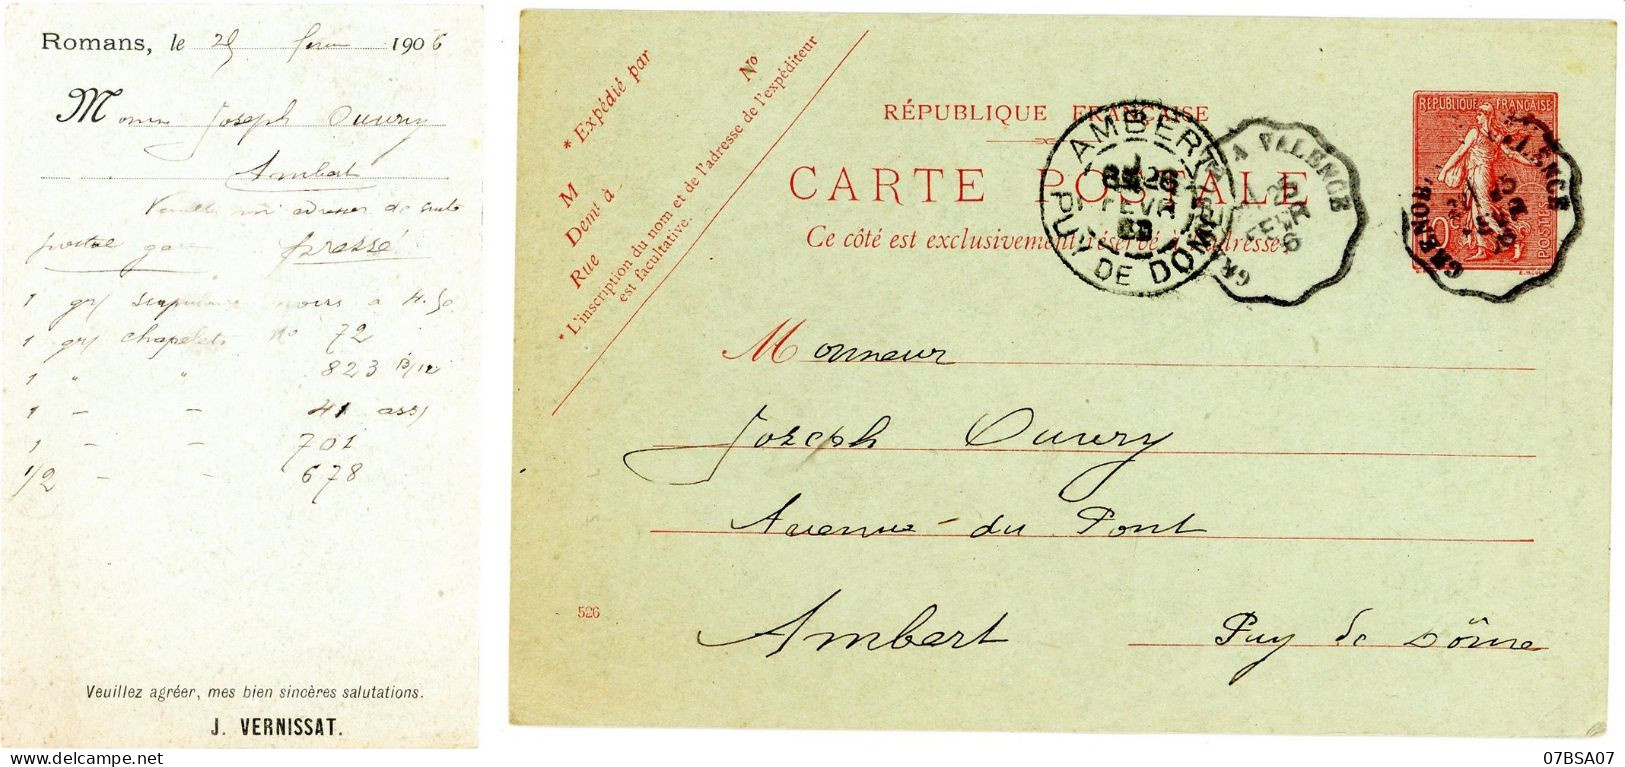 Romans, le 25 1906
Monsieur Joseph Ouvry
Ambert
Veuillez m'adresser de suite
postal gare pressé
1 grs scapulaires noirs à 4.50
1 grs chapelets No 72
1 " " 823 B/12
1 - - 41 ass
1 - - 701
1/2 - - 678
Veuillez agréer, mes bien sincères salutations.
J. VERNISSAT.
* Expédié par
M
No
Demt à
Rue
* L'inscription du nom et de l'adresse de l'expéditeur
est facultative.
RÉPUBLIQUE FRANÇAISE
CARTE POSTALE
Ce côté est exclusivement réservé à l'adresse.
AMBERT
26
FEVR
PUY DE DOME
A VALENCE
25
FEVR
06
GRENOB.
VALENCE
RÉPUBLIQUE FRANÇAISE
10
POSTES
Monsieur
Joseph Ouvry
Avenue du Pont
Ambert Puy de Dôme
526
07BSA07